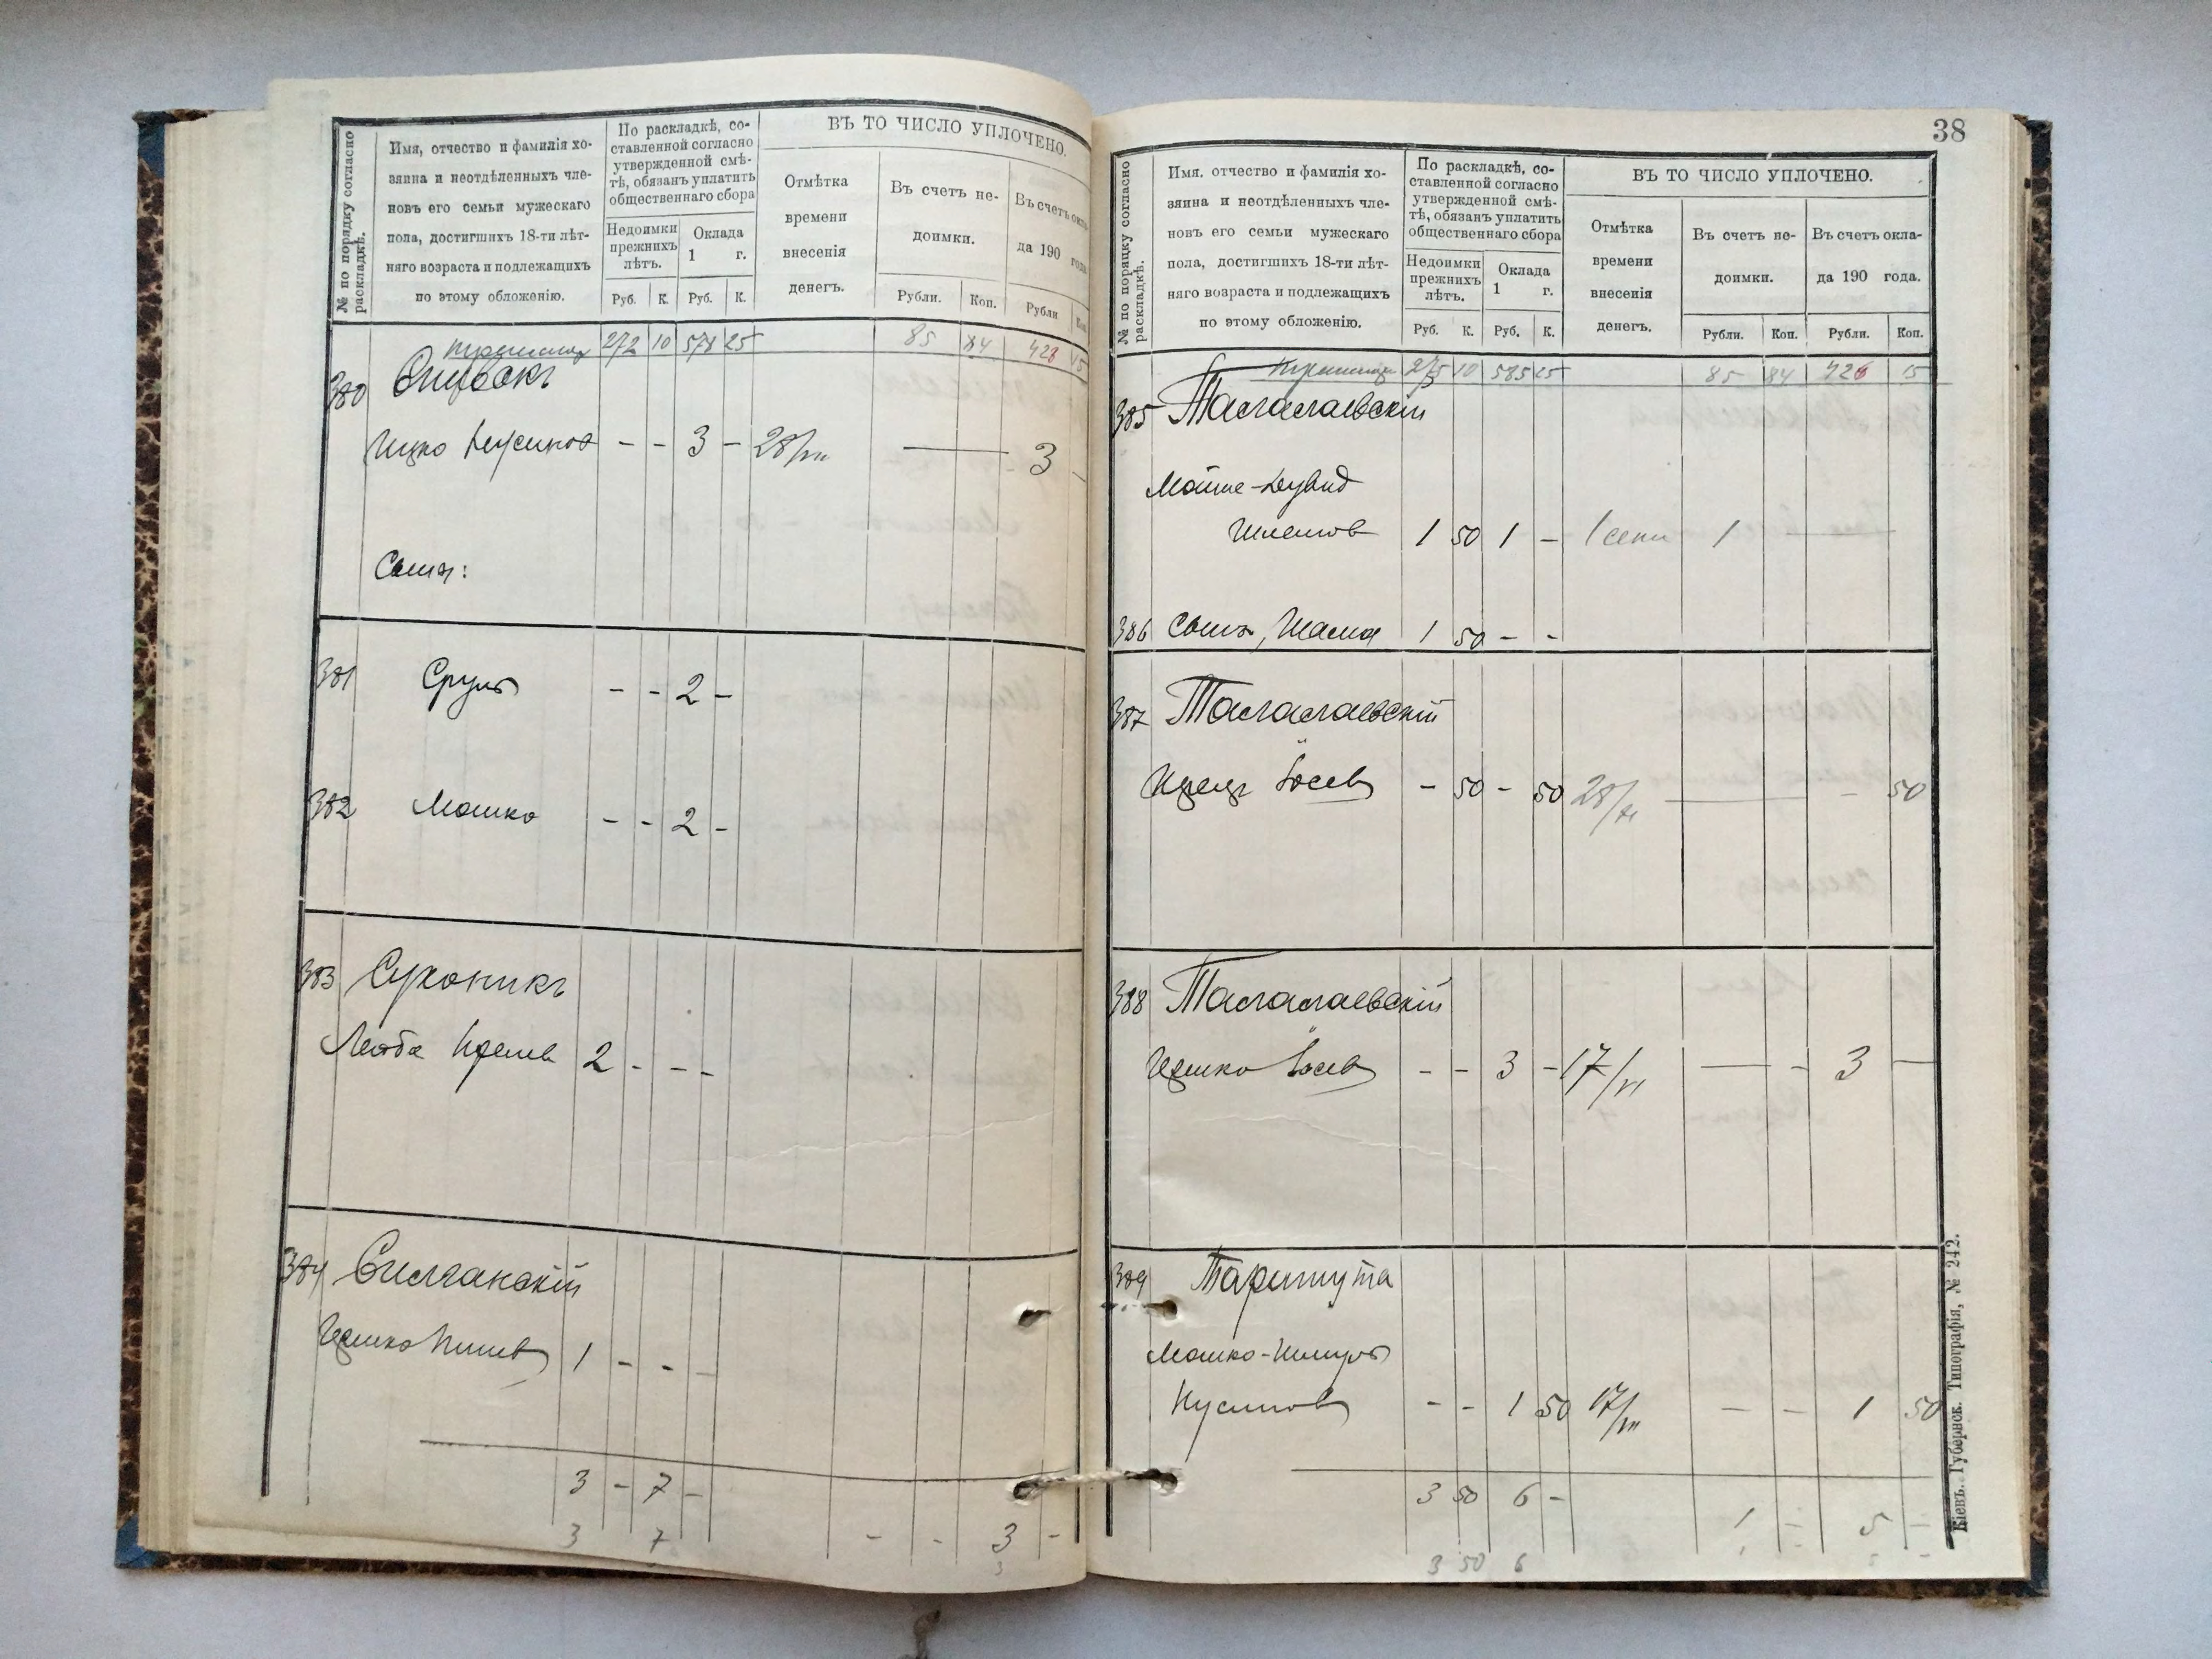 № по порядку согласно раскладкѣ.
Имя, отчество и фамилія хо-
зяина и неотдѣленныхъ чле-
новъ его семьи мужескаго
пола, достигшихъ 18-ти лѣт-
няго возраста и подлежащихъ
по этому обложенію.
По раскладкѣ, со-
ставленной согласно
утвержденной смѣ-
тѣ, обязанъ уплатить
общественнаго сбора
Недоимки
прежнихъ
лѣтъ.
Оклада
1 г.
Руб. К. Руб. К.
ВЪ ТО ЧИСЛО УПЛОЧЕНО.
Отмѣтка
времени
внесенія
денегъ.
Въ счетъ не-
доимки.
Рубли. Коп.
Въ счетъ окла-
да 190 года
Рубли Коп.
272 10 578 25 85 84 423 15
380 Спивакъ
Ицко - - 3 - 28/VII — 3
Сынъ:
381 Сруль - - 2 -
382 Мошко - - 2 -
383 Сухоникъ
Лейба 2 - - -
384
Ицко 1 - - -
3 - 7 -
3 7 - - 3 -
3
38
№ по порядку согласно раскладкѣ.
Имя, отчество и фамилія хо-
зяина и неотдѣленныхъ чле-
новъ его семьи мужескаго
пола, достигшихъ 18-ти лѣт-
няго возраста и подлежащихъ
по этому обложенію.
По раскладкѣ, со-
ставленной согласно
утвержденной смѣ-
тѣ, обязанъ уплатить
общественнаго сбора
Недоимки
прежнихъ
лѣтъ.
Оклада
1 г.
Руб. К. Руб. К.
ВЪ ТО ЧИСЛО УПЛОЧЕНО.
Отмѣтка
времени
внесенія
денегъ.
Въ счетъ не-
доимки.
Рубли. Коп.
Въ счетъ окла-
да 190 года.
Рубли. Коп.
275 10 585 25 85 84 426 15
385 Талалаевскій
Мойше-Дувид
Шлемов 1 50 1 - 1 сент 1 —
386 Сынъ, 1 50 - -
387 Талалаевскій
Іосев - 50 - 50 28/VI — - 50
388 Талалаевскій
Іосев - - 3 - 17/VI — - 3 —
389 Таришута
Мошко-Шмуль
Нусинов - - 1 50 17/VII - - 1 50
3 50 6 -
1 - 5 -
3 50 6
Кіевъ. Губернск. Типографія, № 242.